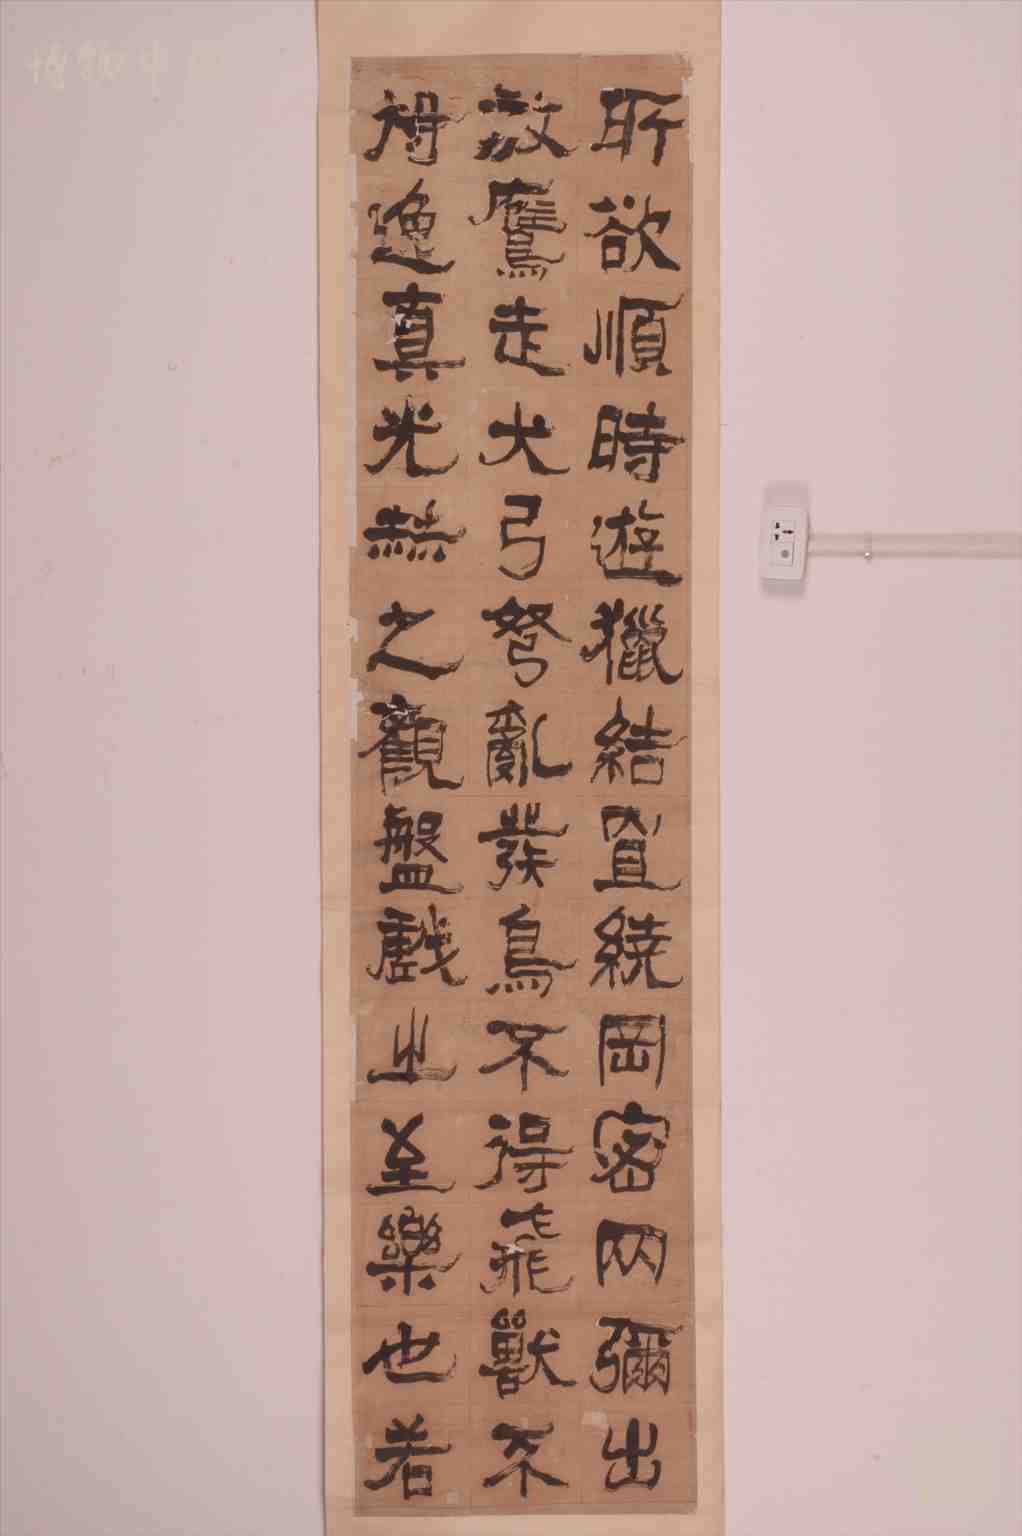 所欲順時遊獵結罝繞岡密网彌出
放鷹走犬弓弩亂發鳥不得飛獸不
得逸真光赫之觀盤戲之至樂也若
博物中国